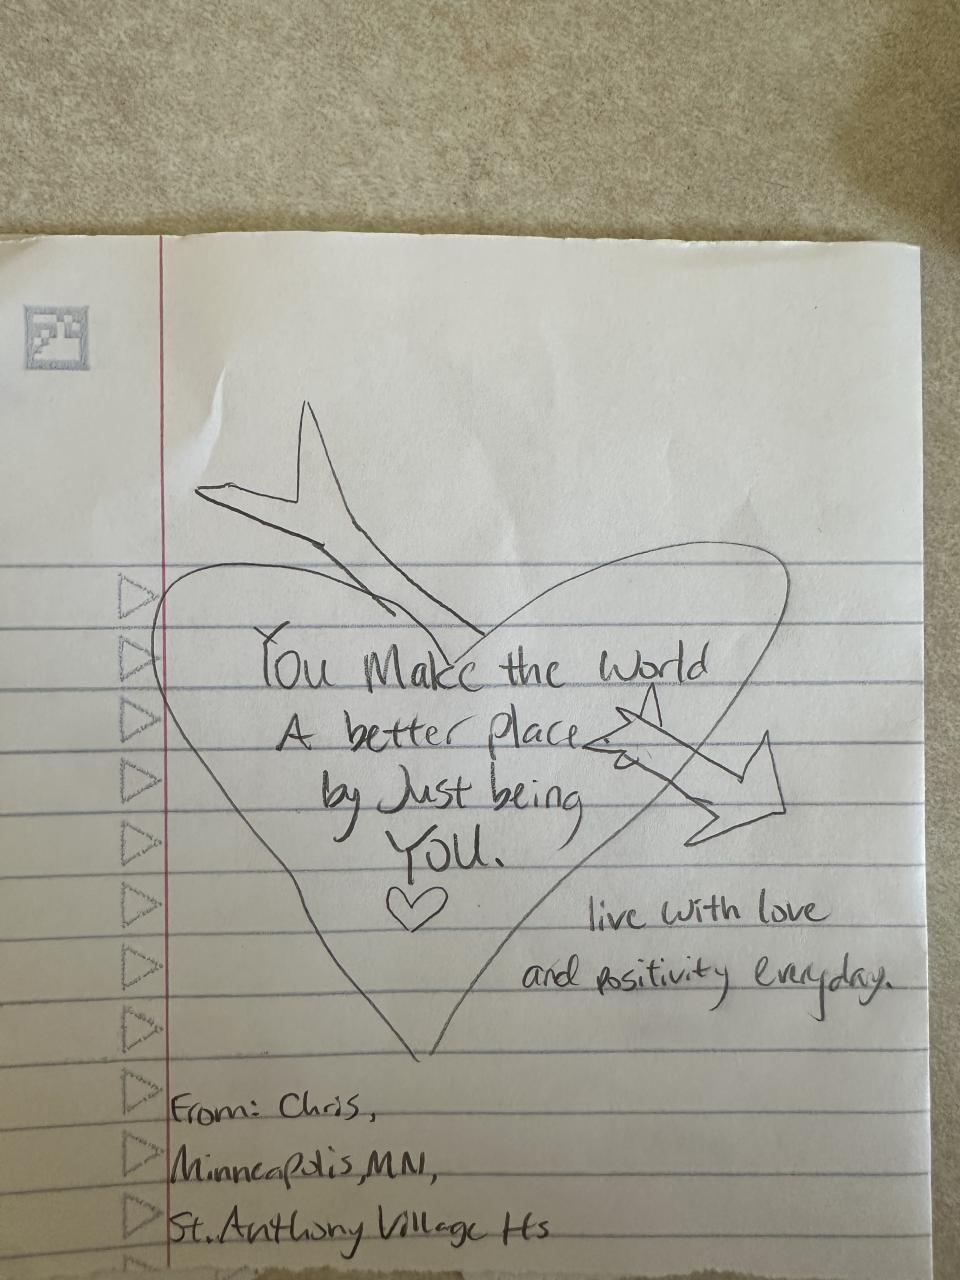 You Make the World
A better place
by Just being
YOU.
live with love
and positivity everyday.
From: Chris,
Minneapolis, MN,
St. Anthony Village Hs